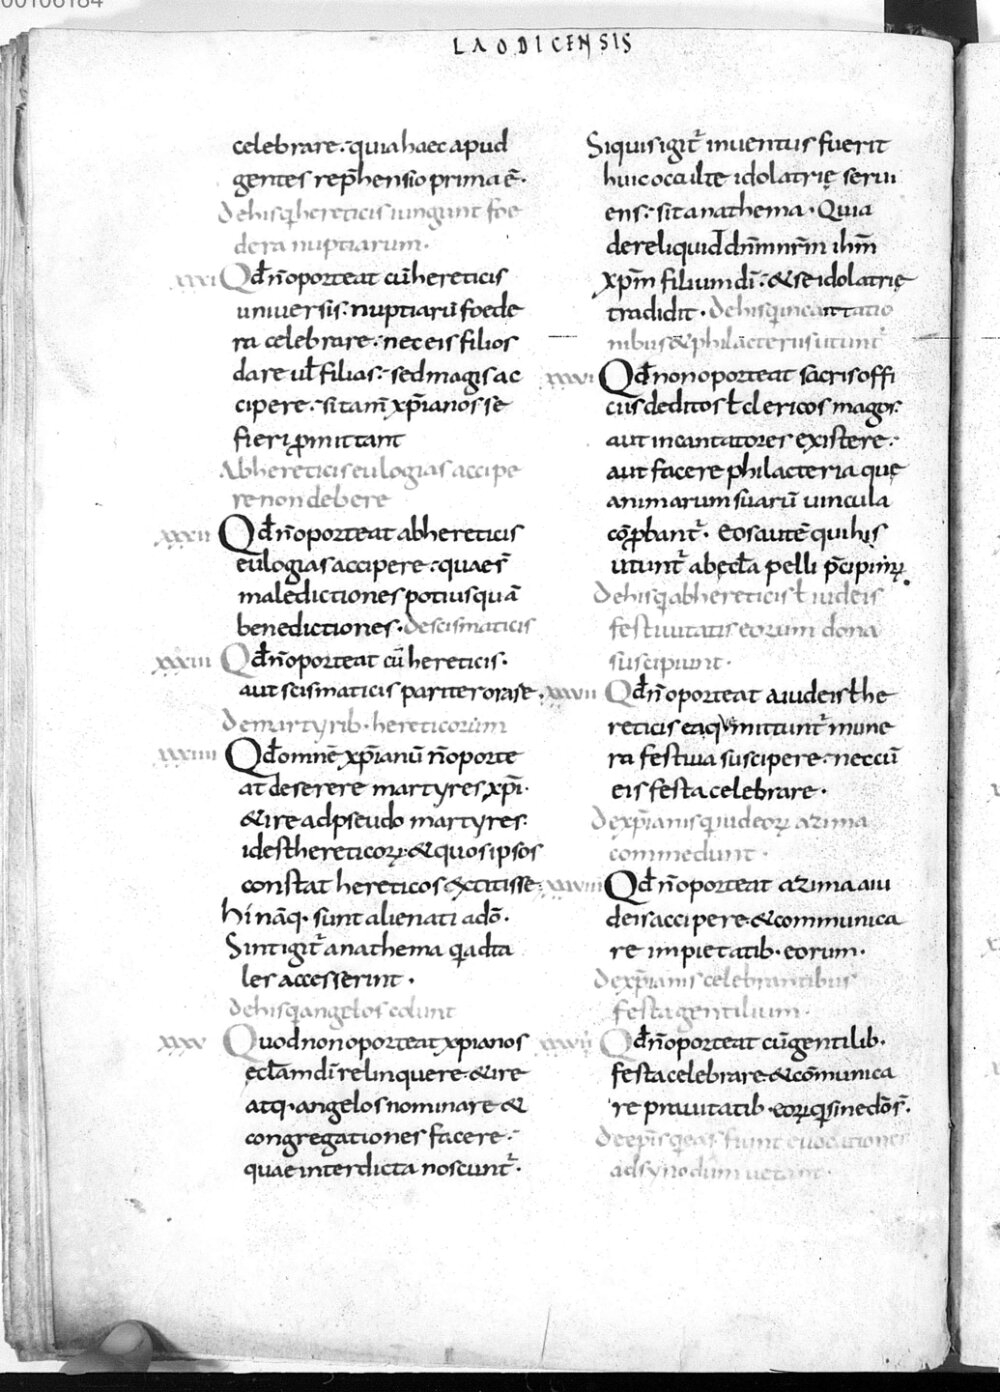 LAODICENSIS
celebrare. quia haec apud
gentes rep̄hensio prima ē.
De his q̣ hereticis iungunt foe
dera nuptiarum.
xxxi Qd̄ n̄ oporteat cū hereticis
universis. nuptiarū foede
ra celebrare. nec eis filios
dare ul̄ filias. sed magis ac
cipere. si tam̄ xp̄ianos se
fieri ꝓmittant
Ab hereticis eulogias accipe
re non debere
xxxii Qd̄ n̄ oporteat ab hereticis
eulogias accipere. quae s̄
maledictiones potius quā
benedictiones. De scismaticis
xxxiii Qd̄ n̄ oporteat cū hereticis.
aut scismaticis pariter orare.
De martyrib. hereticorum
xxxiiii Qd̄ omnē xp̄ianū n̄ oporte
at deserere martyres xp̄i.
& ire ad pseudo martyres.
id est hereticoꝝ. & quos ipsos
constat hereticos extitisse.
hi nāq. sunt alienati a dō.
Sint igit̄ anathema q̣ ad ta
les accesserint.
De his q̣ angelos colunt
xxxv Quod non oporteat xpianos
eccl̄am dī relinquere. & ire
atq. angelos nominare &
congregationes facere.
quae interdicta noscunt̄.
Si quis igit̄ inventus fuerit
huic occulte idolatrię servi
ens. sit anathema. Quia
dereliquid dn̄m nr̄m ihm̄
xp̄m filium dī. & se idolatrię
tradidit. De his q̣ incantatio
nibus & philacteriis utunt̄
xxxvi Qd̄ non oporteat sacris offi
ciis deditos ł clericos magos.
aut incantatores existere.
aut facere philacteria que
animarum suarū vincula
cōꝓbant̄. Eos autē qui his
utunt̄ ab eccl̄a pelli p̄cipimꝰ.
De his q̣ ab hereticis ł iudeis
festivitatis eorum dona
suscipiunt.
xxxvii Qd̄ n̄ oporteat a iudeis ł he
reticis ea q̣ mittunt̄ mune
ra festiva suscipere. nec cū
eis festa celebrare.
De xp̄ianis q̣ iudeoꝝ azima
commedunt.
xxxviii Qd̄ n̄ oporteat azima a iu
deis accipere. & communica
re impietatib. eorum.
De xp̄ianis celebrantibus
festa gentilium.
Qd̄ n̄ oporteat cū gentilib.
festa celebrare. & cōmunica
re pravitatib. eoꝝ
De ep̄is
ad synodum vetant.